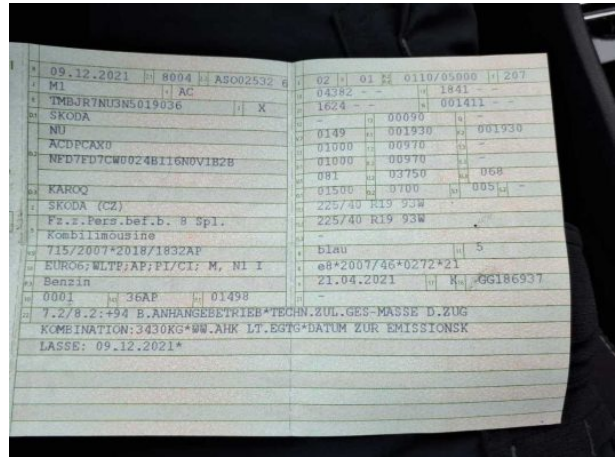 09.12.2021 8004 ASO02532 6
M1 AC
TMBJR7NU3N5019036 X
SKODA
NU
ACDPCAX0
NFD7FD7CW0024BI16N0V1B2B
KAROQ
SKODA (CZ)
Fz.z.Pers.bef.b. 8 Spl.
Kombilimousine
715/2007*2018/1832AP
EURO6;WLTP;AP;PI/CI; M, N1 I
Benzin
0001 36AP 01498
02 01 0110/05000 207
04382 - - 1841 - -
1624 - - 001411 - -
- 00090 -
0149 001930 001930
01000 00970 -
01000 00970 -
081 03750 068
01500 0700 005 -
225/40 R19 93W
225/40 R19 93W
-
blau 5
e8*2007/46*0272*21
21.04.2021 K GG186937
-
7.2/8.2:+94 B.ANHANGEBETRIEB*TECHN.ZUL.GES-MASSE D.ZUG
KOMBINATION:3430KG*WW.AHK LT.EGTG*DATUM ZUR EMISSIONSK
LASSE: 09.12.2021*